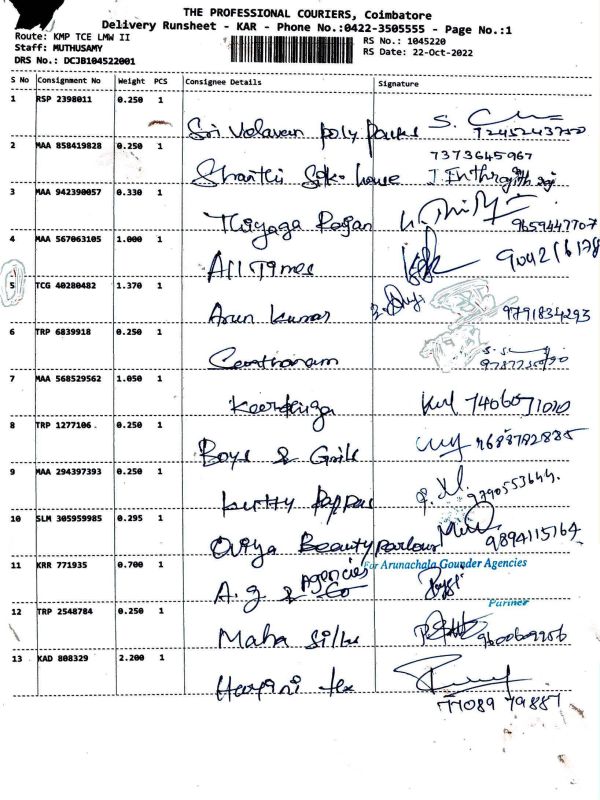 THE PROFESSIONAL COURIERS, Coimbatore
Delivery Runsheet - KAR - Phone No.:0422-3505555 - Page No.:1
Route: KMP TCE LMW II
RS No.: 1045220
Staff: MUTHUSAMY
RS Date: 22-Oct-2022
DRS No.: DCJB104522001
S No Consignment No Weight PCS Consignee Details Signature
1 RSP 2398011 0.250 1
Sri Velavan poly 7245243750
2 MAA 858419828 0.250 1
7373645967
Shanthi house
3 MAA 942390057 0.330 1
Thiyaga Rajan 9659447707
4 MAA 567063105 1.000 1
All Times
5 TCG 40280482 1.370 1
Arun kumar 9791834293
6 TRP 6839918 0.250 1
7 MAA 568529562 1.050 1
8 TRP 1277106 0.250 1
Boys &
9 MAA 294397393 0.250 1
kutty 9790553644.
10 SLM 305959985 0.295 1
Oviya Beauty parlour 9894115764
11 KRR 771935 0.700 1
For Arunachala Gounder Agencies
A. g & Agencies
Partner
12 TRP 2548784 0.250 1
Maha Silks
13 KAD 808329 2.200 1
Harini tex
77089 79887